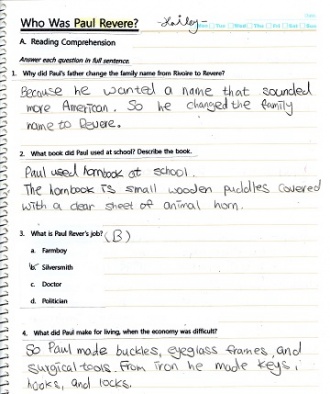 Who Was Paul Revere? -Hailey-
A. Reading Comprehension
Answer each question in full sentence.
1. Why did Paul's father change the family name from Rivoire to Revere?
Because he wanted a name that sounded
more American. So he changed the family
name to Revere.
2. What book did Paul used at school? Describe the book.
Paul used hornbook at school.
The hornbook is small wooden puddles covered
with a clear sheet of animal horn.
3. What is Paul Rever's job? (B)
a. Farmboy
b. Silversmith
c. Doctor
d. Politician
4. What did Paul make for living, when the economy was difficult?
So Paul made buckles, eyeglass frames, and
surgical tools. From iron he made keys,
hooks, and locks.